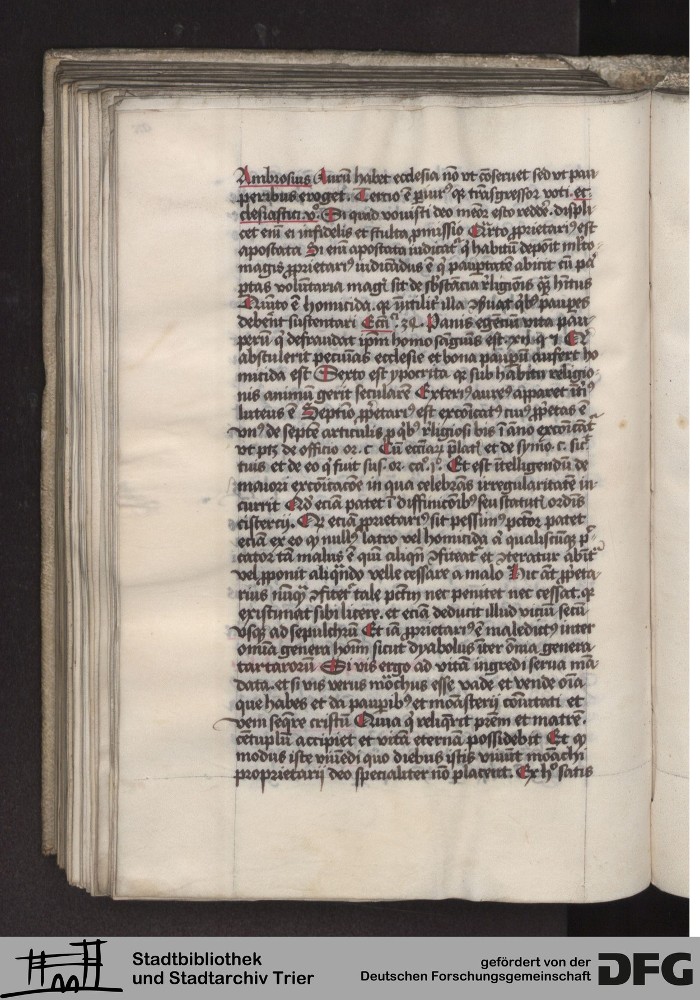 Ambrosius Aurū habet ecclesia nō vt cōseruet sed vt pau
peribus eroget. Tercio ē periur9 qr trāsgressor voti. et
clesiastici. vo. Si quid vouisti deo meōr esto reddē. displi
cet enī ei infidelis et stulta ꝓmissio Qrto ꝓprietari9 est
apostata Si enī apostata iudicat' q habitū deponit mlto
magis ꝓprietari9 iudicādus ē q paupertatē abicit cū pau
ꝑtas volūtaria magis sit de sbstācia religionis qȝ hītus
Quīto ē homicida. qr īutilit' illa qbȝ pauꝑes
debēnt sustentari Ecci. 34. Panis egēnū vita pau
perū q defraudat ipm homo sāguīs est. Qr
abstulerit pecunias ecclesie et bona pauꝑū aufert ho
micida est Sexto est ypocrita qr sub habitu religio
nis animū gerit secularem Exteri9 aure9 apparet īt'i9
luteus ē Septīo ꝓprietari9 est excōicat9 cui9 ꝓprietas ē
vn9 de septē articulis ꝓ qbȝ religiosi bis ī āno excōicāt'
vt ptȝ de officio or. c Cū ecciarū prelati et de symo. c. sic'
tuis et de eo q fuit sus. or. ca. Et est ītelligendū de
maiori excōicacōe in qua celebrās irregularitatē in
currit Qd eciā patet ī diffinicōibȝ seu statutis ordīs
cistercij. Qr eciā ꝓprietari9 sit pessim9 pctor patet
eciā ex eo qȝ null9 latro vel homicida aut qualiscūqȝ pec
cator tam malus ē quī aliqn 9fiteat' et 9teratur
vel ꝓponit aliqndo velle cessare a malo Hic aūt ꝓprieta
rius nūqȝ 9fitet' tale pctm nec penitet nec cessat. qr
existimat sibi licere. et eciā deducit illud viciū secū
vsqȝ ad sepulchrū Et iā ꝓprietari9 ē maledict9 inter
omīa genera hoīm sicut dyabolus īter ōmia genera
tartarorū Si vis ergo ad vitā ingredi serua mā
data. et si vis verus mōchus esse vade et vende oīa
que habes et da pauꝑibȝ et monasterij cōitati et
veni seqre cristū Quia q reliqrit prem et matrē.
cētuplū accipiet et vitā eternā possidebit Et qȝ
modus iste viuēdi quo diebus istis viuūt mōachi
proprietarij deo specialiter nō placent. Ex ho satis
Stadtbibliothek
und Stadtarchiv Trier
gefördert von der
Deutschen Forschungsgemeinschaft
DFG